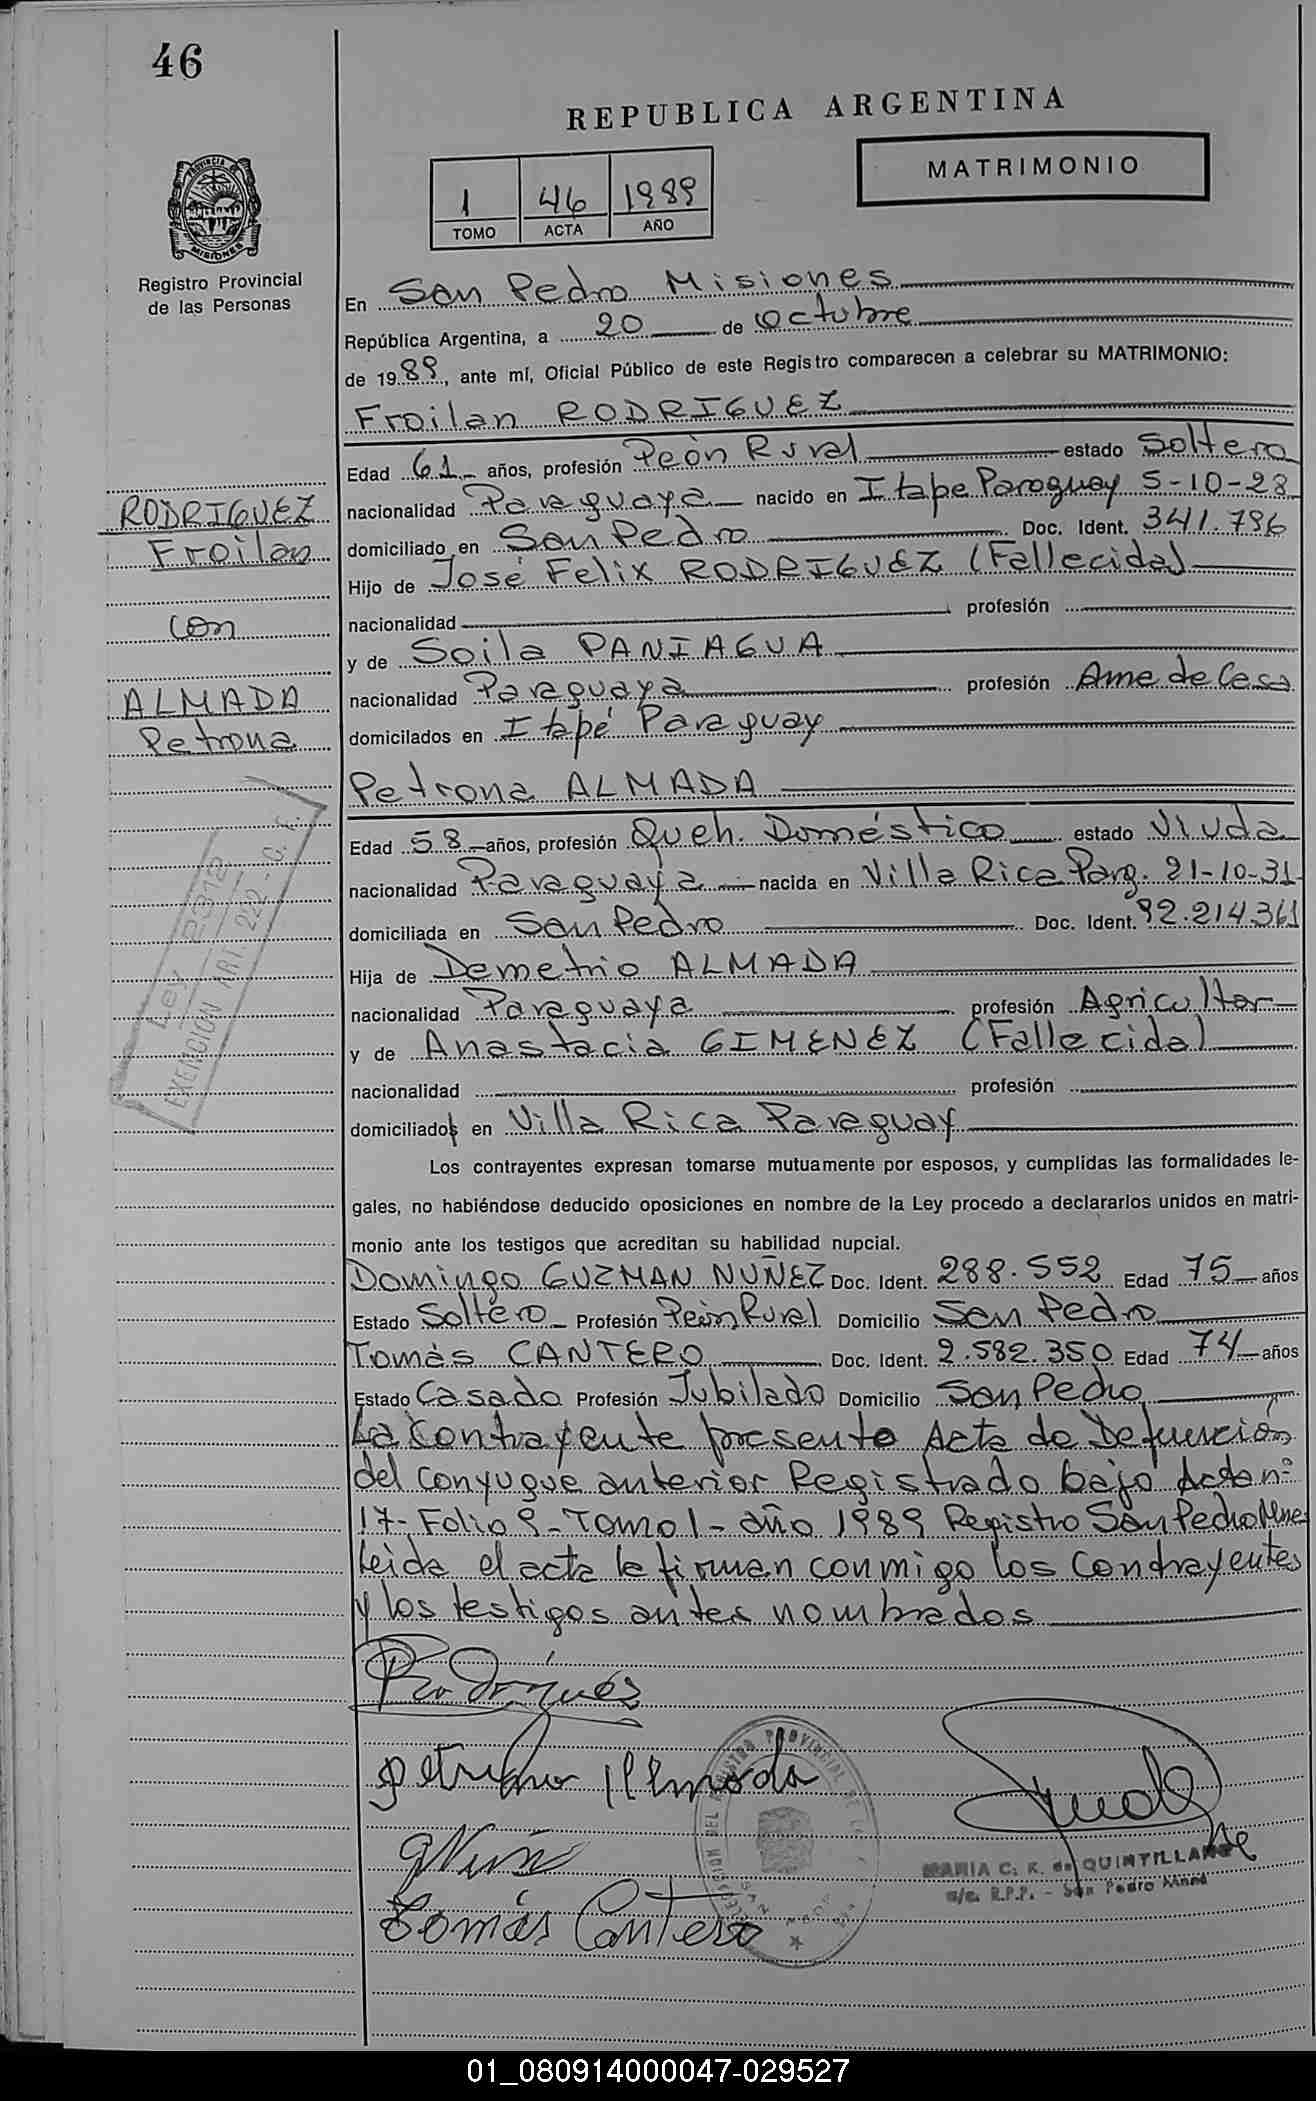 46
REPUBLICA ARGENTINA
MATRIMONIO
1 46 1989
TOMO ACTA AÑO
PROVINCIA DE MISIONES
Registro Provincial
de las Personas
En San Pedro Misiones
República Argentina, a 20 de Octubre
de 1989, ante mí, Oficial Público de este Registro comparecen a celebrar su MATRIMONIO:
Froilan RODRIGUEZ
Edad 61 años, profesión Peón Rural estado Soltero
nacionalidad Paraguaya nacido en Itape Paraguay 5-10-28
domiciliado en San Pedro Doc. Ident. 341.796
Hijo de José Felix RODRIGUEZ (Fallecido)
nacionalidad profesión
y de Soila PANIAGUA
nacionalidad Paraguaya profesión Ama de Casa
domicilados en Itapé Paraguay
RODRIGUEZ
Froilan
con
ALMADA
Petrona
Petrona ALMADA
Edad 58 años, profesión Queh. Doméstico estado Viuda
nacionalidad Paraguaya nacida en Villa Rica Parg. 21-10-31
domiciliada en San Pedro Doc. Ident. 92.214.361
Hija de Demetrio ALMADA
nacionalidad Paraguaya profesión Agricultor
y de Anastacia GIMENEZ (Fallecida)
nacionalidad profesión
domiciliados en Villa Rica Paraguay
Ley 2312
EXENCION ART. 222 - C. F.
Los contrayentes expresan tomarse mutuamente por esposos, y cumplidas las formalidades le-
gales, no habiéndose deducido oposiciones en nombre de la Ley procedo a declararlos unidos en matri-
monio ante los testigos que acreditan su habilidad nupcial.
Domingo GUZMAN NUÑEZ Doc. Ident. 288.552 Edad 75 años
Estado Soltero Profesión Peón Rural Domicilio San Pedro
Tomás CANTERO Doc. Ident. 2.582.350 Edad 74 años
Estado Casado Profesión Jubilado Domicilio San Pedro
La contrayente presento Acta de Defunción
del conyugue anterior Registrado bajo Acta nº
17- Folio 9- Tomo 1- año 1989 Registro San Pedro Mnes
Leida el acta la firman conmigo los contrayentes
y los testigos antes nombrados
Rodrígués
Petrona Almada
Tomás Cantero
MARIA C. K. de QUINTILLAN
a/c. R.P.P. - San Pedro Mnes
01_080914000047-029527